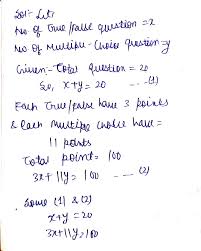 Sol:- Let:
No of True/false question = x
No of Multiple-Choice question=y
Given- Total question = 20
So, x+y= 20 --- (1)
Each True/false have 3 points
& Each multiple choice have =
11 points
Total point= 100
3x+11y= 100 --- (2)
Solve (1) & (2)
x+y = 20
3x+11y=100